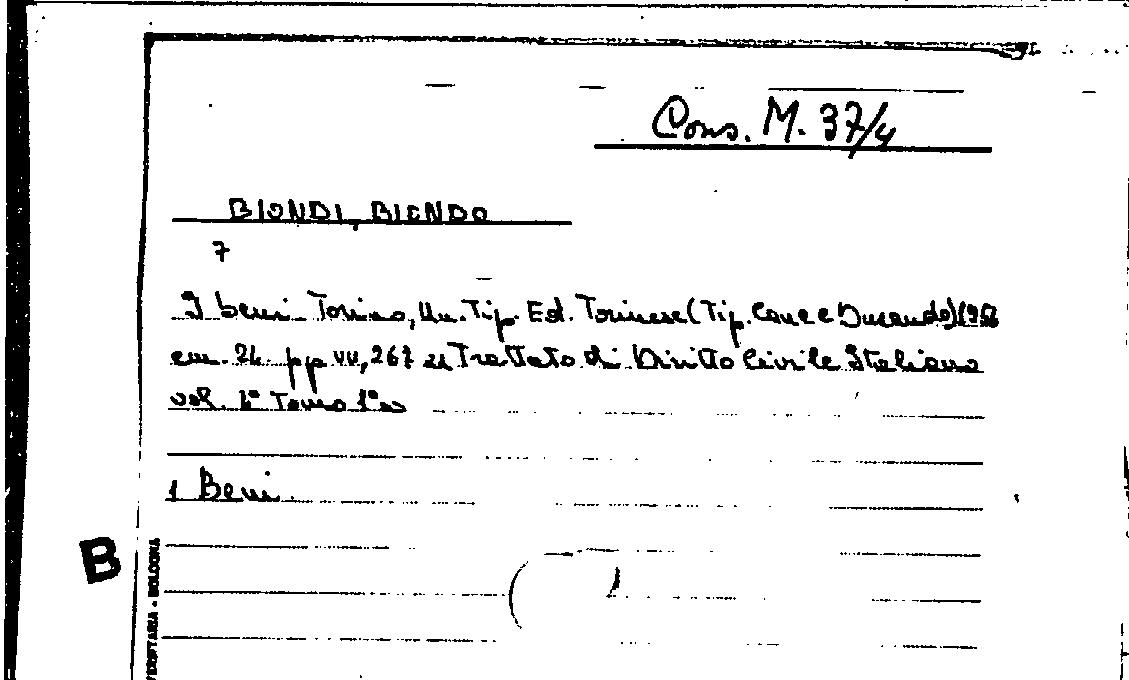 Cons. M. 37/4
BIONDI, BIONDO
7
I beni Torino, Un. Tip. Ed. Torinese (Tip. Cane e Durando) 1956
cm. 24. pp VII, 267 Trattato di Diritto Civile Italiano
vol. Tomo 1°
1 Beni.
B
VERSITARIA - BOLOGNA